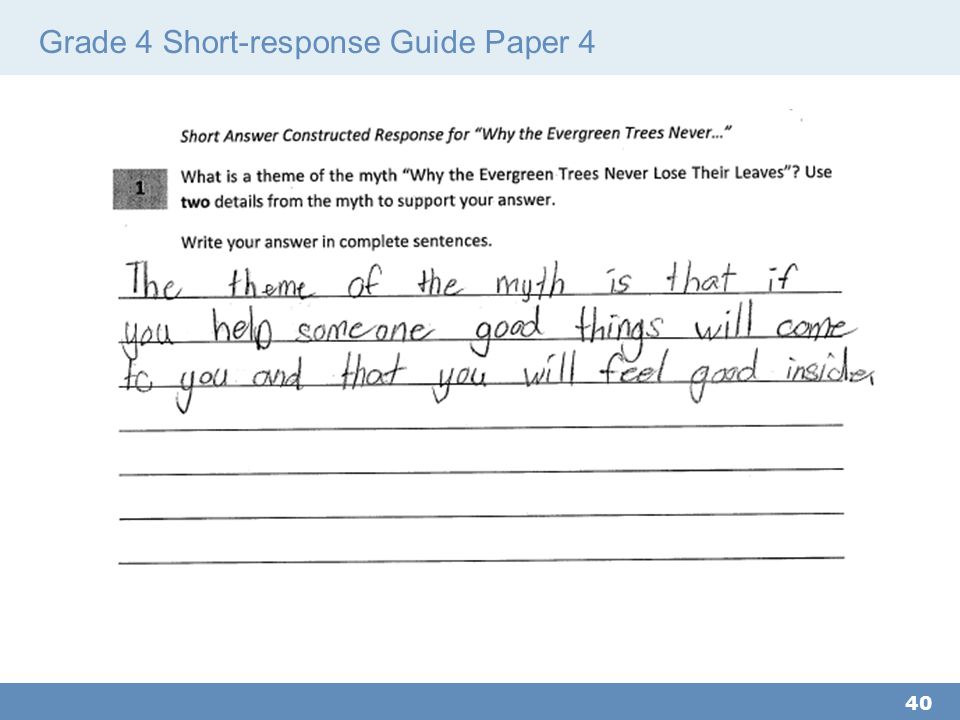 Grade 4 Short-response Guide Paper 4
Short Answer Constructed Response for "Why the Evergreen Trees Never..."
1
What is a theme of the myth "Why the Evergreen Trees Never Lose Their Leaves"? Use
two details from the myth to support your answer.
Write your answer in complete sentences.
The theme of the myth is that if
you help someone good things will come
to you and that you will feel good inside.
40